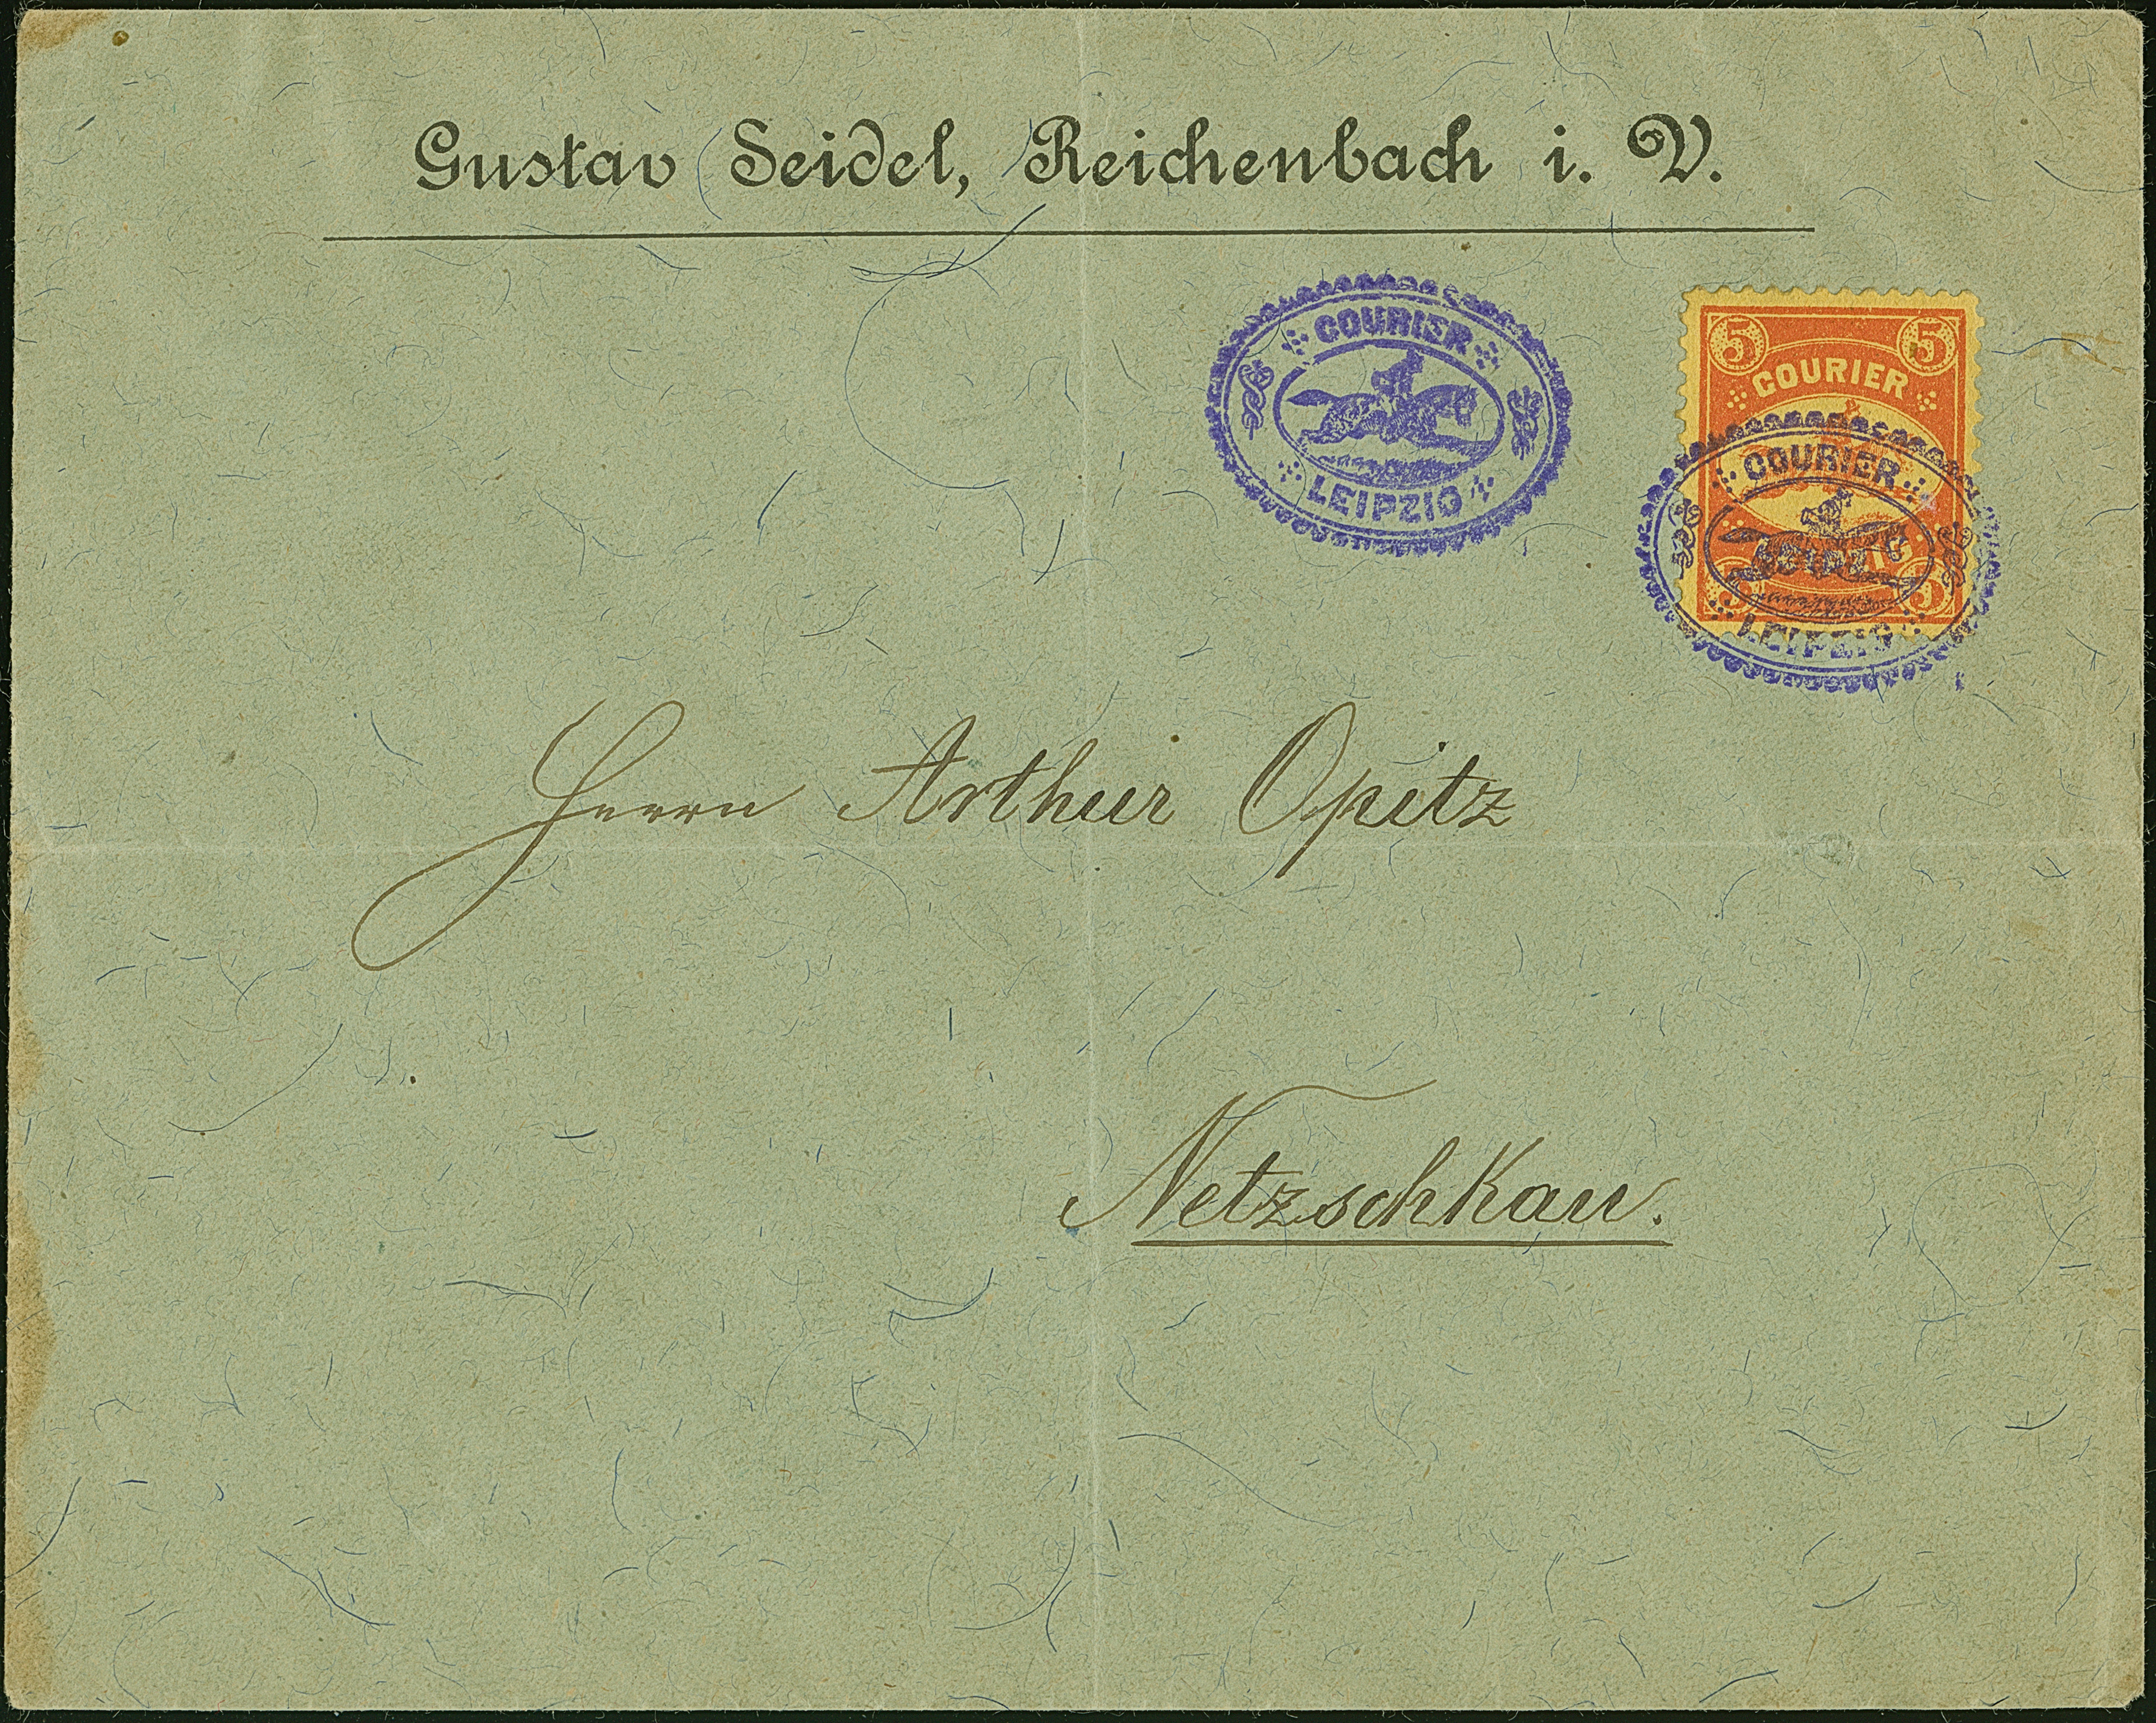 Gustav Seidel, Reichenbach i. V.
COURIER
LEIPZIG
5 5
COURIER
COURIER
LEIPZIG
5 5
LEIPZIG
Herrn Arthur Opitz
Netzschkau.